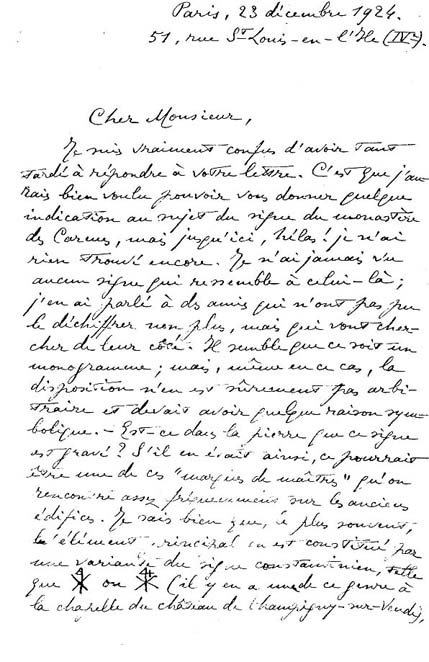 Paris, 23 décembre 1924.
51, rue St Louis-en-l'Ile (IVe).
Cher Monsieur,
Je suis vraiment confus d'avoir tant
tardé à répondre à votre lettre. C'est que j'au-
rais bien voulu pouvoir vous donner quelque
indication au sujet du signe du monastère
des Carmes, mais jusqu'ici, hélas! je n'ai
rien trouvé encore. Je n'ai jamais vu
aucun signe qui ressemble à celui-là ;
j'en ai parlé à des amis qui n'ont pas pu
le déchiffrer non plus, mais qui vont cher-
cher de leur côté. Il semble que ce soit un
monogramme ; mais, même en ce cas, la
disposition n'en est sûrement pas arbi-
traire et devait avoir quelque raison sym-
bolique. – Est-ce dans la pierre que ce signe
est gravé? S'il en était ainsi, ce pourrait
être une de ces "marques de maîtres" qu'on
rencontre assez fréquemment sur les anciens
édifices. Je sais bien que, le plus souvent,
l'élément principal en est constitué par
une variante du signe constantinien, telle
que ou (il y en a une de ce genre à
la chapelle du château de Champigny-sur-Veude),